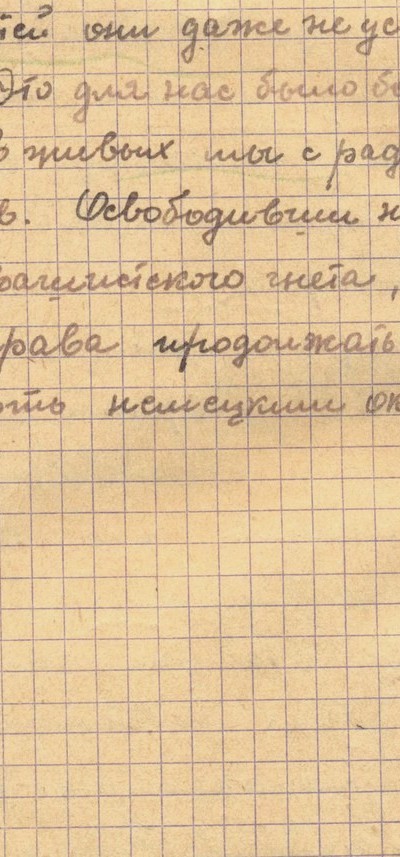 они даже не ус
Это для нас было бо
в живых мы с рад
в. Освободивши н
фашистского гнета,
права продолжать
немецким ок